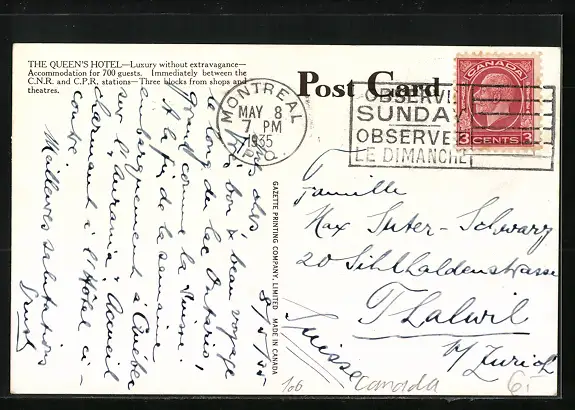 THE QUEEN'S HOTEL—Luxury without extravagance—
Accommodation for 700 guests. Immediately between the
C.N.R. and C.P.R. stations—Three blocks from shops and
theatres.
Post Card
MONTREAL
MAY 8
7 PM
1935
P.Q.
OBSERVE
SUNDAY
OBSERVEZ
LE DIMANCHE
CANADA
3 CENTS 3
8/5/35
très bon & beau voyage
le long du lac Ontario,
grand comme la Suisse!
A la fin de la semaine
embarquement à Québec
sur l'"Aurania". Accueil
charmant à l'Hôtel ci-
contre.
Meilleures salutations
GAZETTE PRINTING COMPANY, LIMITED MADE IN CANADA
Famille
Max Suter-Schwarz
20 Sihlhaldenstrasse
Thalwil
b/Zürich
Suisse
Canada
6.-